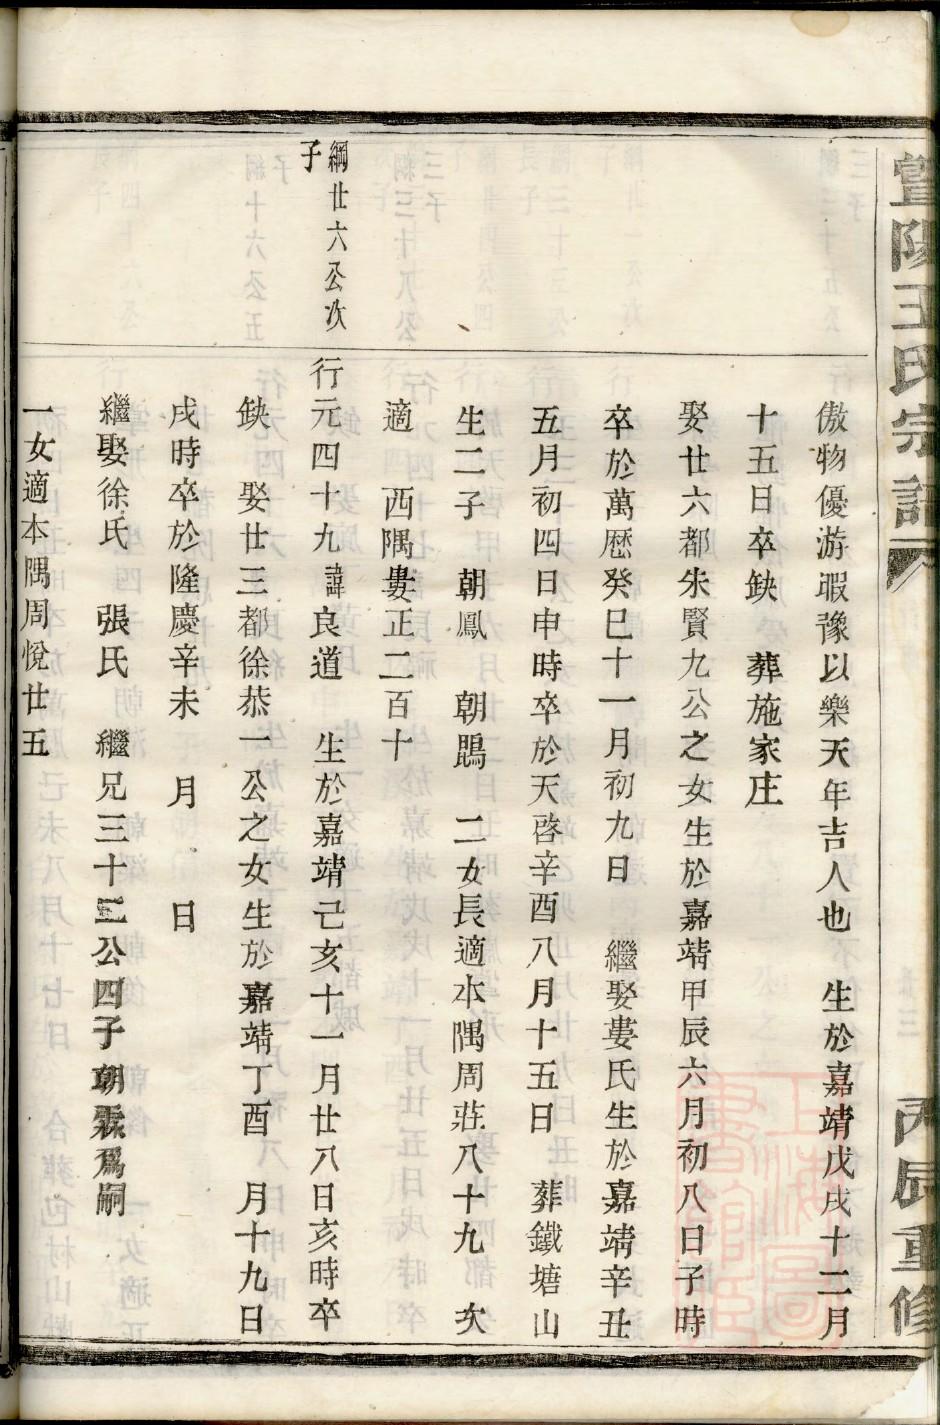 暨陽王氏宗譜
丙辰重修
傲物優游遐豫以樂天年吉人也　生於嘉靖戊戌十二月
十五日卒缺　葬施家庄
娶廿六都朱賢九公之女生於嘉靖甲辰六月初八日子時
卒於萬曆癸巳十一月初九日　繼娶婁氏生於嘉靖辛丑
五月初四日申時卒於天啓辛酉八月十五日　葬鐵塘山
生二子　朝鳳　朝鵾　二女長適本隅周莊八十九　次
適　西隅婁正二百十
綱廿六公次
子
行元四十九諱良道　生於嘉靖己亥十一月廿八日亥時卒
缺　娶廿三都徐恭一公之女生於嘉靖丁酉　月十九日
戌時卒於隆慶辛未　月　日
繼娶徐氏　張氏　繼兄三十三公四子朝霖爲嗣
一女適本隅周悅廿五